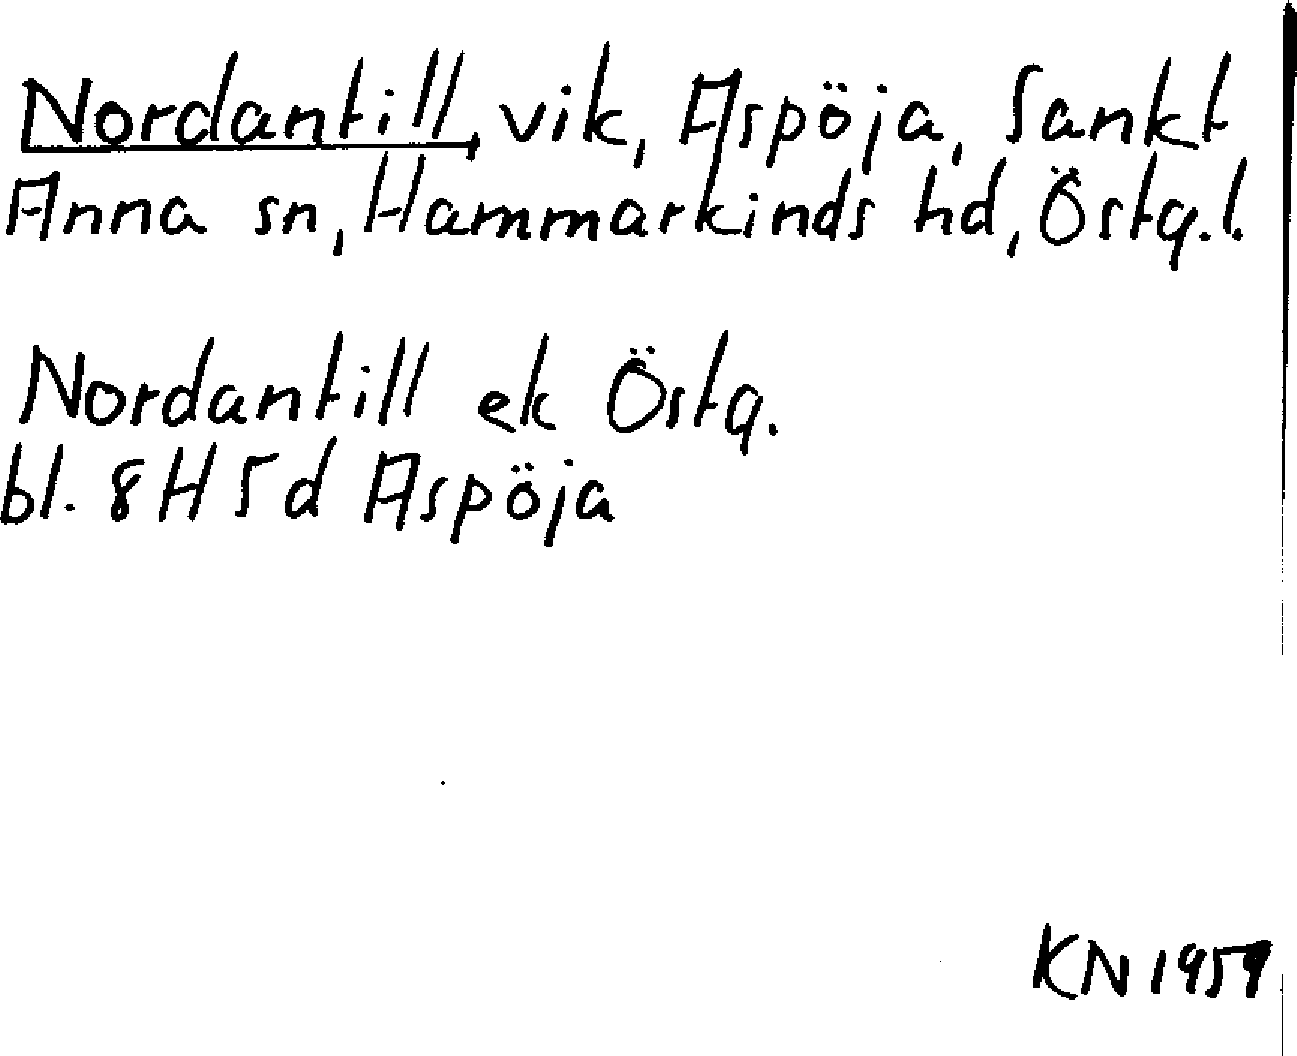 Nordantill, vik, Aspöja, Sankt
Anna sn, Hammarkinds hd, Östg.l.
Nordantill ek Östg.
bl. 8H5d Aspöja
KN 1959